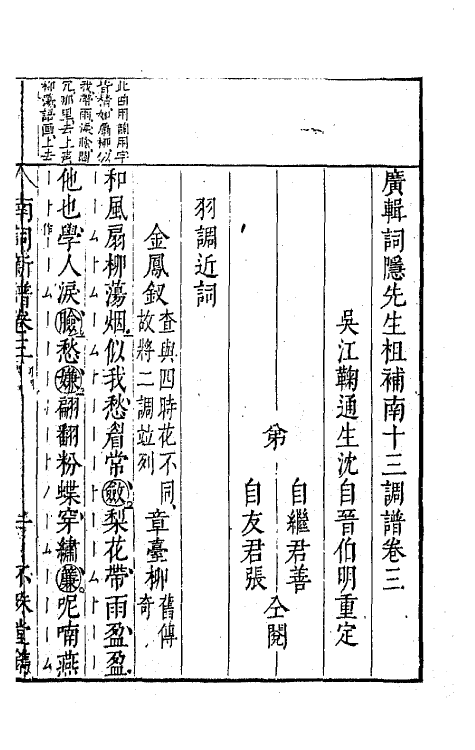 廣輯詞隱先生祖補南十三調譜卷三
吳江鞠通生沈自晉伯明重定
弟
自繼君善
自友君張
仝閱
羽調近詞
金鳳釵
查與四時花不同
故將二調竝列
章臺柳
舊傳奇
和風扇柳蕩烟似我愁眉常斂梨花帶雨盈盈
他也學人淚臉愁嫌翩翻粉蝶穿繡簾呢喃燕
作
此曲用韻用字
柳
南詞新譜卷三
不殊堂